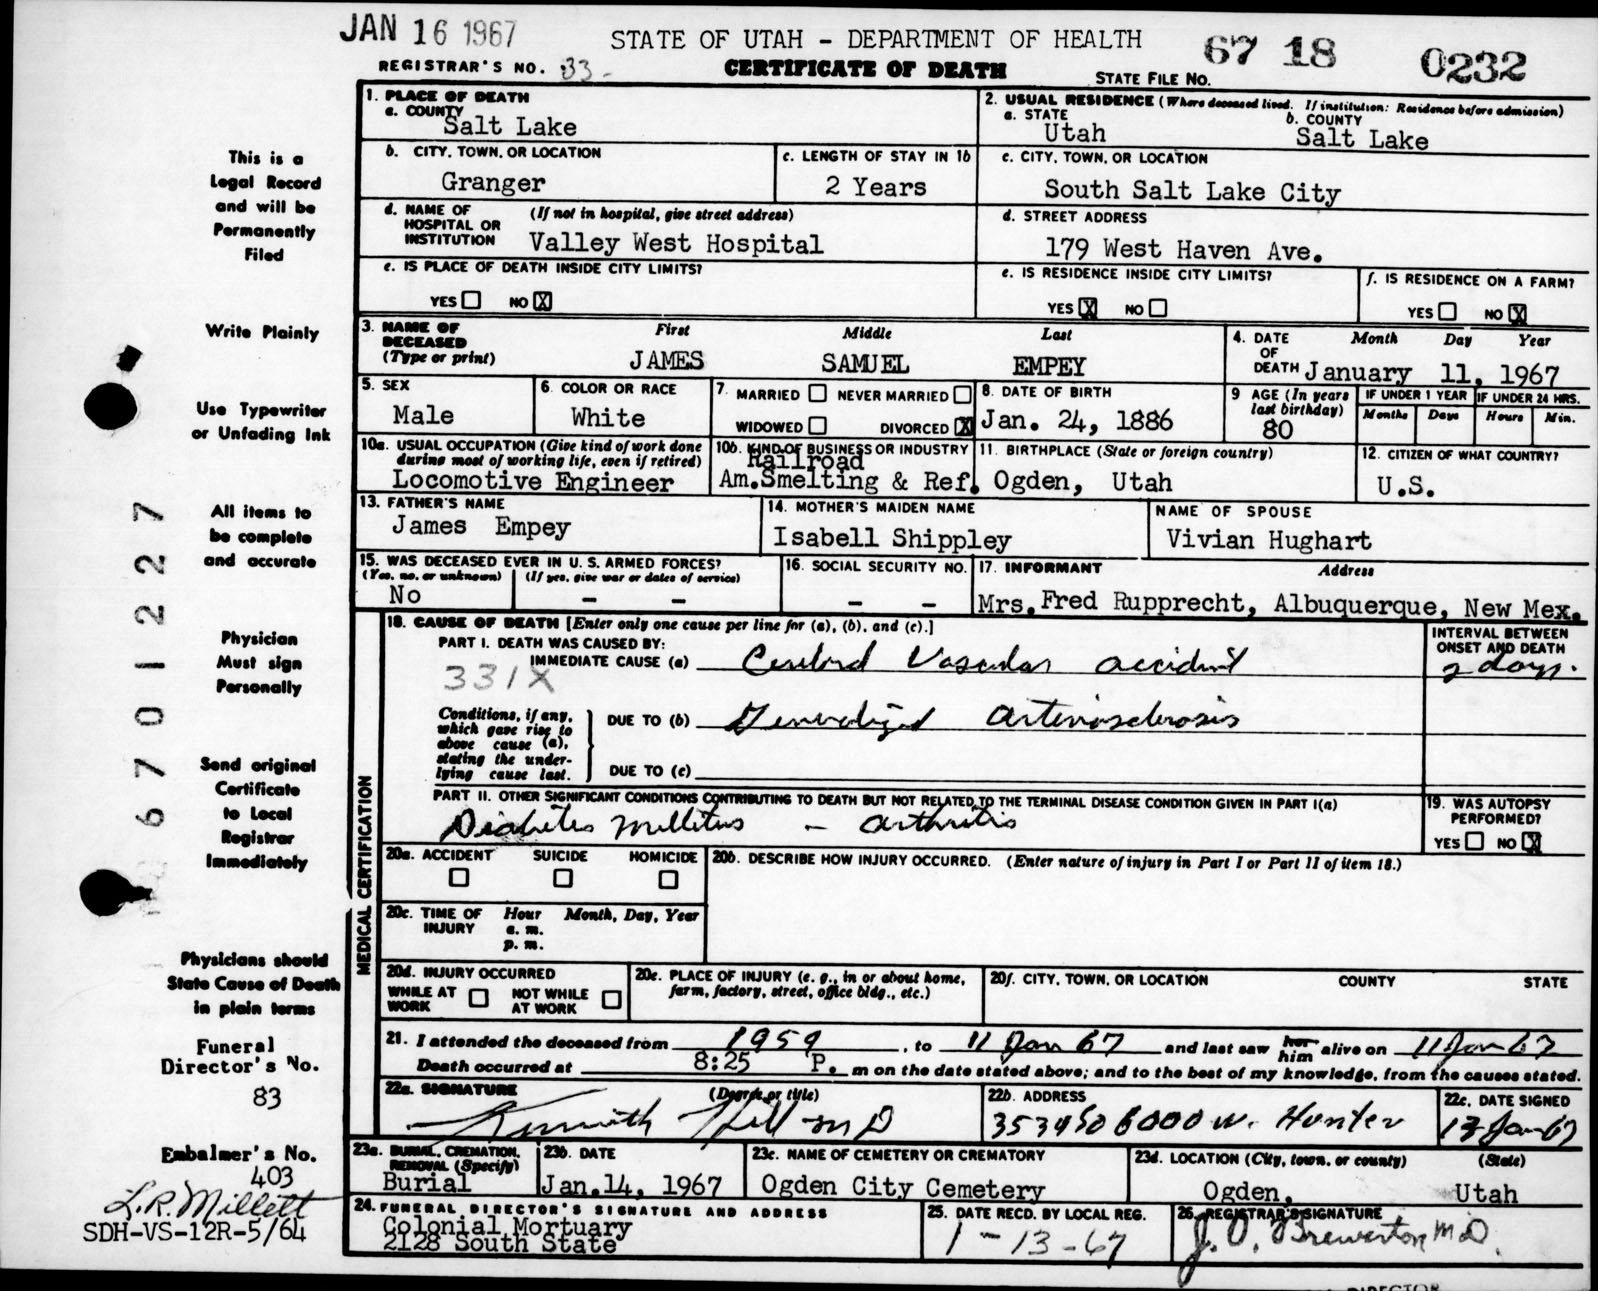 JAN 16 1967
STATE OF UTAH - DEPARTMENT OF HEALTH
67 18 0232
REGISTRAR'S NO. 33-
CERTIFICATE OF DEATH
STATE FILE NO.
This is a
Legal Record
and will be
Permanently
Filed
Write Plainly
Use Typewriter
or Unfading Ink
All items to
be complete
and accurate
Physician
Must sign
Personally
Send original
Certificate
to Local
Registrar
Immediately
Physicians should
State Cause of Death
in plain terms
Funeral
Director's No.
83
Embalmer's No.
403
L.R. Millett
SDH-VS-12R-5/64
67012227
1. PLACE OF DEATH
a. COUNTY
Salt Lake
2. USUAL RESIDENCE (Where deceased lived. If institution: Residence before admission)
a. STATE b. COUNTY
Utah Salt Lake
b. CITY, TOWN, OR LOCATION
Granger
c. LENGTH OF STAY IN 1b
2 Years
c. CITY, TOWN, OR LOCATION
South Salt Lake City
d. NAME OF HOSPITAL OR INSTITUTION (If not in hospital, give street address)
Valley West Hospital
d. STREET ADDRESS
179 West Haven Ave.
e. IS PLACE OF DEATH INSIDE CITY LIMITS?
YES NO X
e. IS RESIDENCE INSIDE CITY LIMITS?
YES X NO
f. IS RESIDENCE ON A FARM?
YES NO X
3. NAME OF DECEASED (Type or print)
First Middle Last
JAMES SAMUEL EMPEY
4. DATE OF DEATH Month Day Year
January 11, 1967
5. SEX
Male
6. COLOR OR RACE
White
7. MARRIED NEVER MARRIED
WIDOWED DIVORCED X
8. DATE OF BIRTH
Jan. 24, 1886
9 AGE (In years last birthday)
80
IF UNDER 1 YEAR IF UNDER 24 HRS.
Months Days Hours Min.
10a. USUAL OCCUPATION (Give kind of work done during most of working life, even if retired)
Locomotive Engineer
10b. KIND OF BUSINESS OR INDUSTRY
Railroad
Am.Smelting & Ref.
11. BIRTHPLACE (State or foreign country)
Ogden, Utah
12. CITIZEN OF WHAT COUNTRY?
U.S.
13. FATHER'S NAME
James Empey
14. MOTHER'S MAIDEN NAME
Isabell Shippley
NAME OF SPOUSE
Vivian Hughart
15. WAS DECEASED EVER IN U. S. ARMED FORCES?
(Yes, no, or unknown) (If yes, give war or dates of service)
No - -
16. SOCIAL SECURITY NO.
- -
17. INFORMANT Address
Mrs. Fred Rupprecht, Albuquerque, New Mex.
MEDICAL CERTIFICATION
18. CAUSE OF DEATH [Enter only one cause per line for (a), (b), and (c).]
PART I. DEATH WAS CAUSED BY:
IMMEDIATE CAUSE (a) Cerebral Vascular accident
331X
INTERVAL BETWEEN ONSET AND DEATH
2 days.
Conditions, if any, which gave rise to above cause (a), stating the underlying cause last.
DUE TO (b) Generalized arteriosclerosis
DUE TO (c)
PART II. OTHER SIGNIFICANT CONDITIONS CONTRIBUTING TO DEATH BUT NOT RELATED TO THE TERMINAL DISEASE CONDITION GIVEN IN PART I(a)
Diabetes mellitus - arthritis
19. WAS AUTOPSY PERFORMED?
YES NO X
20a. ACCIDENT SUICIDE HOMICIDE
20b. DESCRIBE HOW INJURY OCCURRED. (Enter nature of injury in Part I or Part II of item 18.)
20c. TIME OF INJURY Hour Month, Day, Year
a. m.
p. m.
20d. INJURY OCCURRED
WHILE AT WORK NOT WHILE AT WORK
20e. PLACE OF INJURY (e. g., in or about home, farm, factory, street, office bldg., etc.)
20f. CITY, TOWN, OR LOCATION COUNTY STATE
21. I attended the deceased from 1959, to 11 Jan 67 and last saw her him alive on 11 Jan 67
Death occurred at 8:25 P. m on the date stated above; and to the best of my knowledge, from the causes stated.
22a. SIGNATURE (Degree or title)
Kenneth Hill MD
22b. ADDRESS
3534 So 6000 W. Hunter
22c. DATE SIGNED
13 Jan 67
23a. BURIAL, CREMATION, REMOVAL (Specify)
Burial
23b. DATE
Jan.14, 1967
23c. NAME OF CEMETERY OR CREMATORY
Ogden City Cemetery
23d. LOCATION (City, town, or county) (State)
Ogden, Utah
24. FUNERAL DIRECTOR'S SIGNATURE AND ADDRESS
Colonial Mortuary
2128 South State
25. DATE RECD. BY LOCAL REG.
1-13-67
26. REGISTRAR'S SIGNATURE
J. O. Brewerton M D.
DIRECTOR